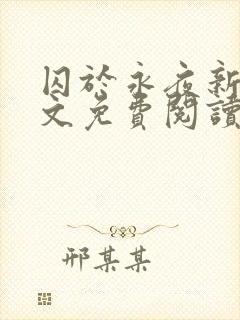 囚於永夜新
文免費閱讀
邢某某